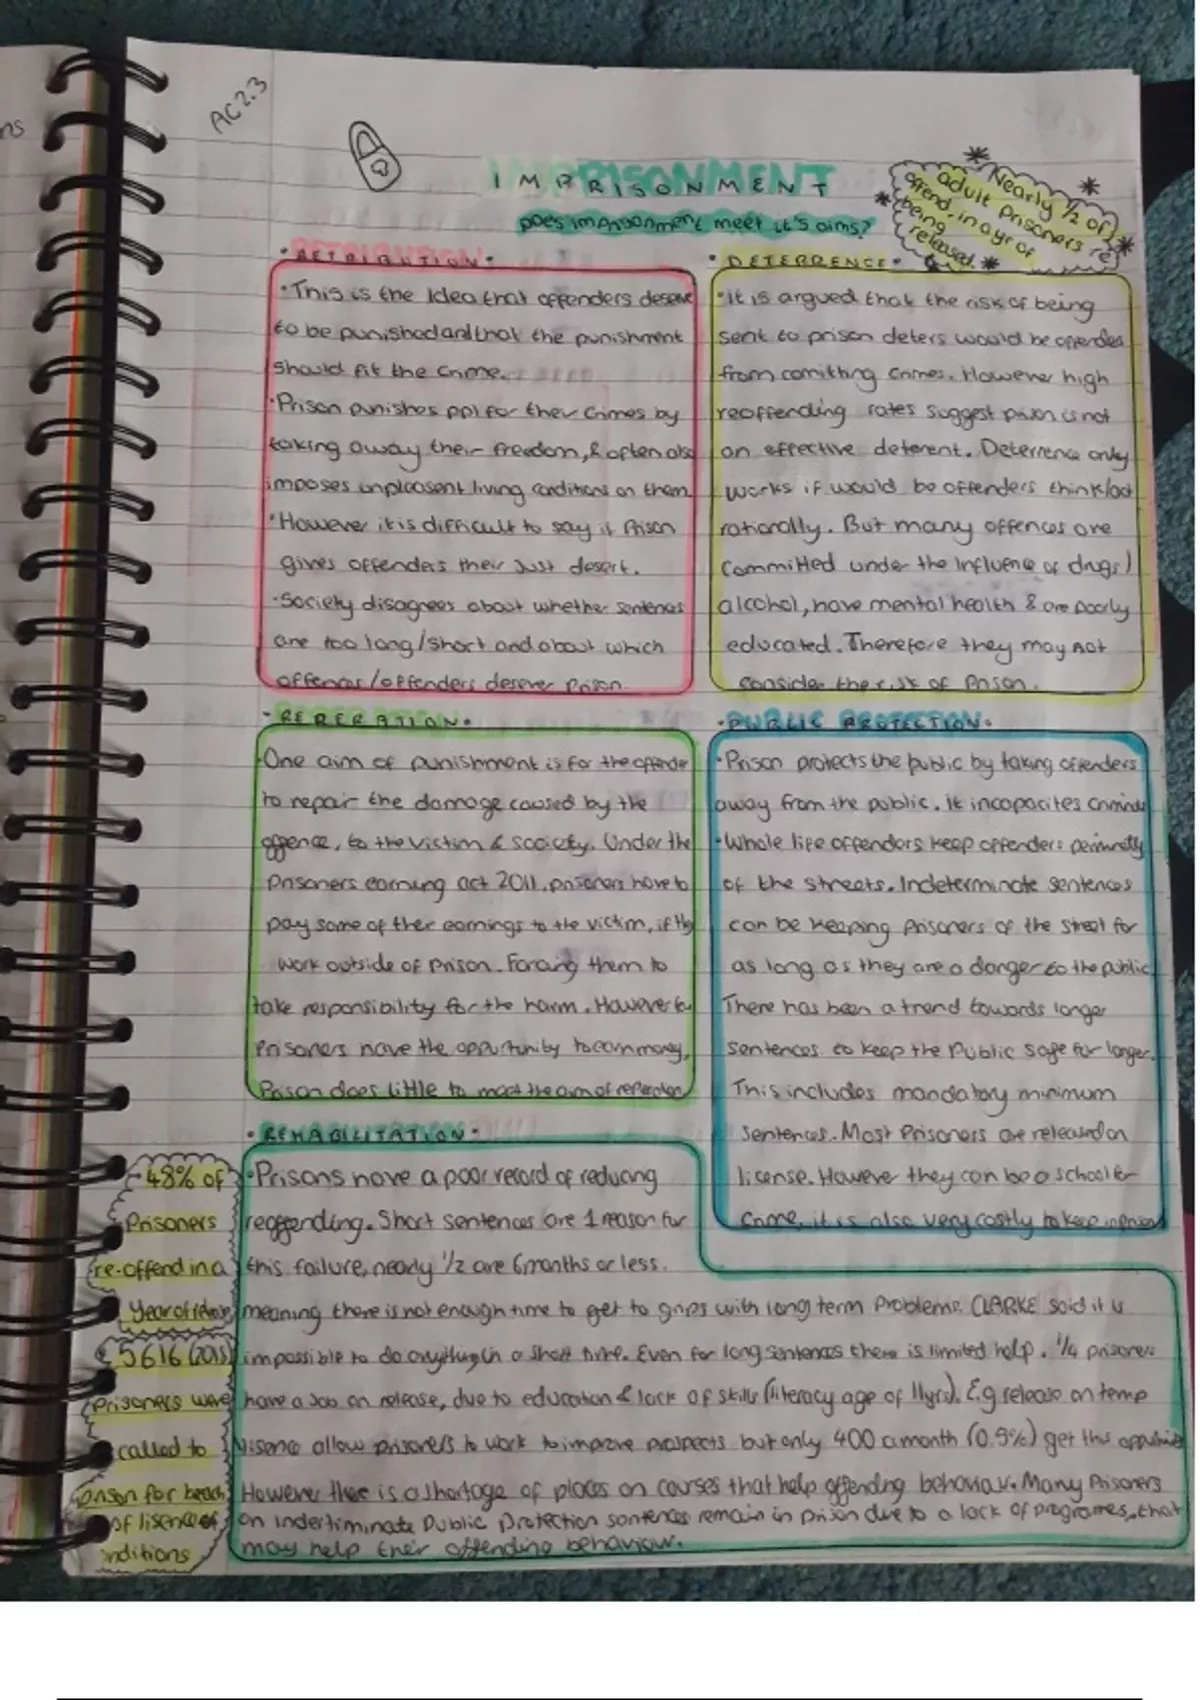 ns
AC2.3
IMPRISONMENT
Does imprisonment meet it's aims?
Nearly 1/2 of
adult prisoners re
offend in a yr of
being
released.
• RETRIBUTION •
• This is the Idea that offenders deserve
to be punished and that the punishment
should fit the crime.
• Prison punishes ppl for their crimes by
taking away their freedom, & often also
imposes unpleasent living conditions on them.
• However it is difficult to say if Prison
gives offenders their just desert.
• Society disagrees about whether sentences
are too long/short and about which
offences/offenders deserve Prison.
• DETERRENCE •
• It is argued that the risk of being
sent to prison deters would be offendes
from comitting crimes. However high
reoffending rates suggest prison is not
an effective deterent. Deterrence only
works if would be offenders think/act
rationally. But many offences are
committed under the influence of drugs/
alcohol, have mental health & are poorly
educated. Therefore they may not
consider the risk of Prison.
• RERERATION •
One aim of punishment is for the offender
to repair the damage caused by the
offence, to the victim & society. Under the
Prisoners earning act 2011, prisoners have to
pay some of ther earnings to the victim, if they
work outside of prison. Forcing them to
take responsibility for the harm. However few
Prisoners have the oppurtunity to earn money,
Prison does little to meet the aim of reperation
• PUBLIC PROTECTION •
• Prison protects the public by taking offenders
away from the public. it incapacites
• Whole life offenders keep offenders
of the streets. Indeterminate sentences
can be keeping prisoners of the street for
as long as they are a danger to the public
There has been a trend towards longer
sentences to keep the Public safe for longer.
This includes mandatory minimum
sentences. Most Prisoners are released on
license. However they can be a school for
crime, it is also very costly to keep in prison
• REHABILITATION •
• Prisons have a poor record of reducing
reoffending. Short sentences are 1 reason for
this failure, nearly 1/2 are 6 months or less.
meaning there is not enough time to get to grips with long term Problems. CLARKE said it is
impossible to do anything in a short time. Even for long sentences there is limited help. 1/4 prisoners
have a job on release, due to education & lack of skills (literacy age of 11yrs). E.g release on temp
lisence allow prisoners to work to improve prospects but only 400 a month (0.5%) get this
However there is a shortage of places on courses that help offending behaviour. Many Prisoners
on indertiminate Public Protection sentences remain in prison due to a lack of programes, that
may help their offending behaviour.
• 48% of
Prisoners
re-offend in a
Year of
5616 (2015)
prisoners were
called to
prison for
of lisence